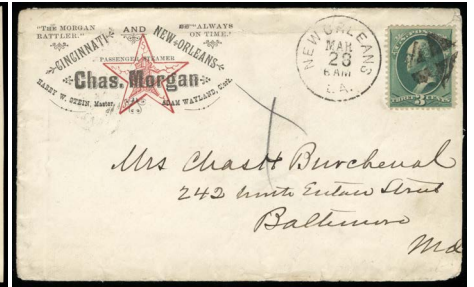 "THE MORGAN RATTLER."
"ALWAYS ON TIME."
CINCINNATI AND NEW-ORLEANS
PASSENGER STEAMER
Chas. Morgan
HARRY W. STEIN, Master,
ADAM WAYLAND, Clerk.
NEW ORLEANS
MAR
28
6AM
LA.
THREE 3 CENTS
Mrs Chas H Burchenal
242 North Eutaw Street
Baltimore
Md